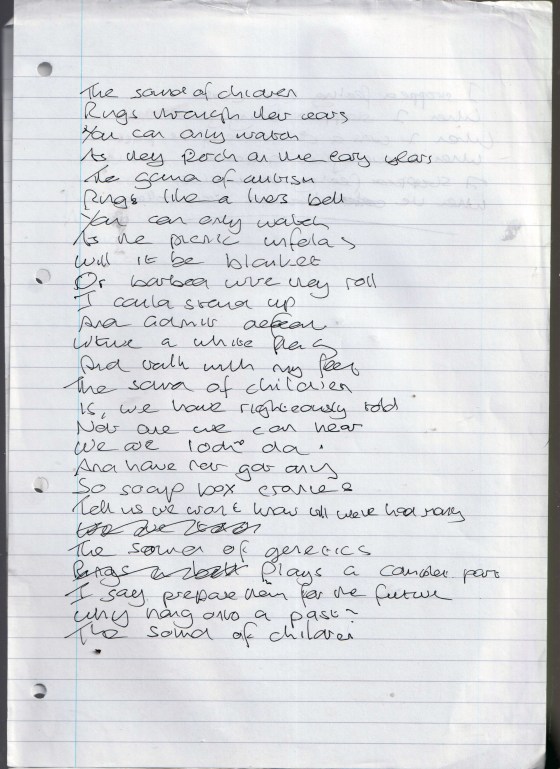 The sound of children
Rings through their ears
You can only watch
As they perch on the early years
The game of autism
Rings like a bell
You can only watch
As the picnic unfolds
Will it be blanket
Or barbed wire they roll
I could stand up
And admit defeat
Wave a white flag
And walk with my feet
The sound of children
Is, we have righteously told
Not one we can hear
We are
And have not got any
So soap box
Tell us we want know till we've had many
The sound of genetics
Plays a complex part
I say prepare them for the future
Why hang onto a past?
The sound of children